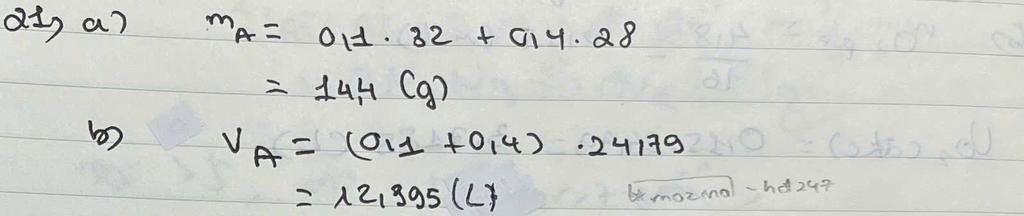 21, a) mA = 0,1 . 32 + 0,4 . 28
= 14,4 (g)
b) VA = (0,1 + 0,4) . 24,79
= 12,395 (L)